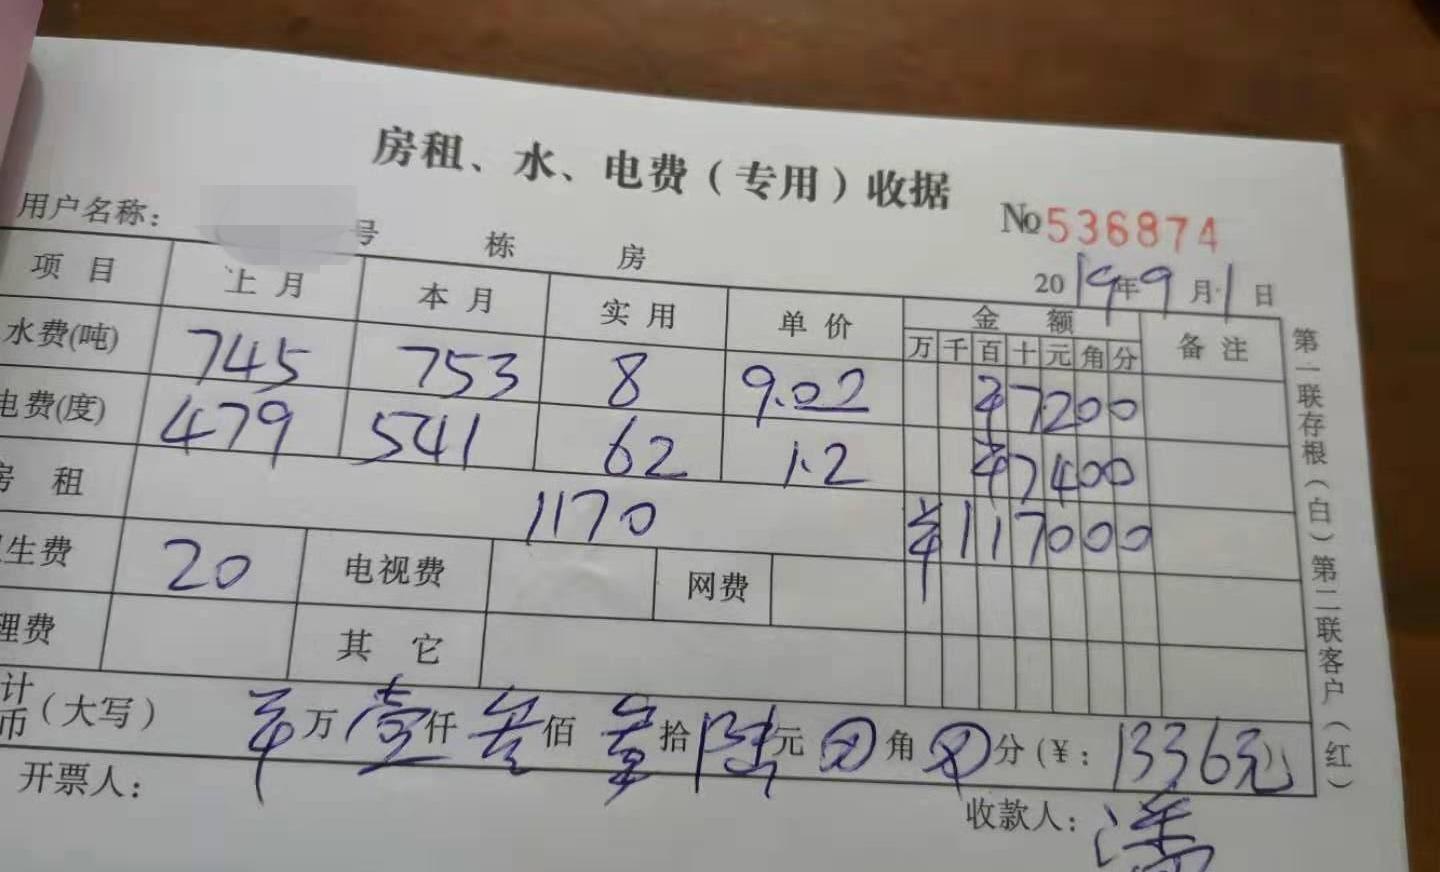 房租、水、电费（专用）收据
No 536874
用户名称： 号 栋 房
2019年9月1日
项目 上月 本月 实用 单价 金额 备注
万 千 百 十 元 角 分
水费(吨) 745 753 8 9.02 ¥7200
电费(度) 479 541 62 1.2 ¥7400
房租 1170 ¥117000
生费 20 电视费 网费
理费 其它
计
币（大写） 万壹仟叁佰叁拾陆元 角 分（¥：1336元
开票人： 收款人：潘
第一联存根（白）第二联客户（红）